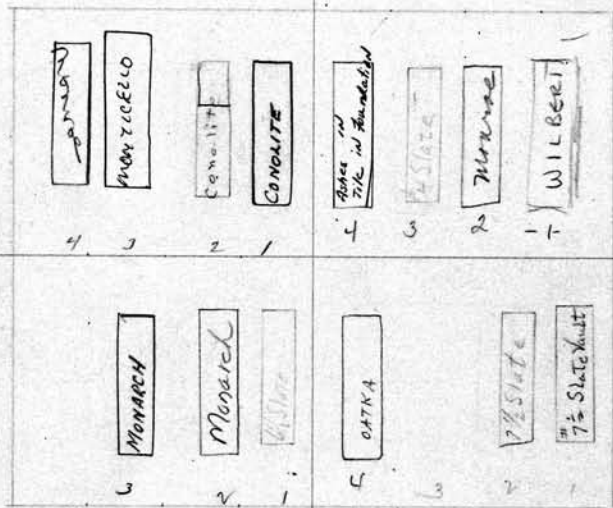 MONTICELLO
Conolite
CONOLITE
4
3
2
1
Ashes in
Tile in Foundation
1/4 Slate
Monroe
WILBERT
4
3
2
-1-
MONARCH
Monarch
Slate
3
2
1
OATKA
7 1/2 Slate
#7 1/2 Slate Vault
4
3
2
1